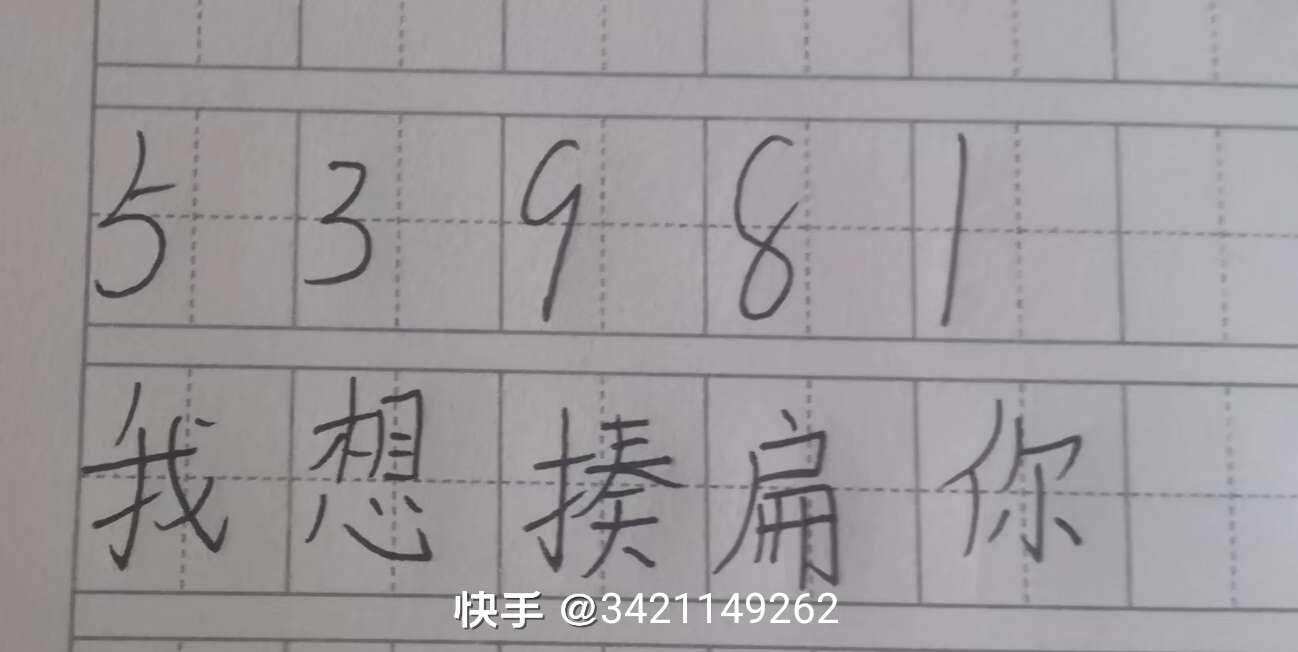 53981
我想揍扁你
快手 @3421149262